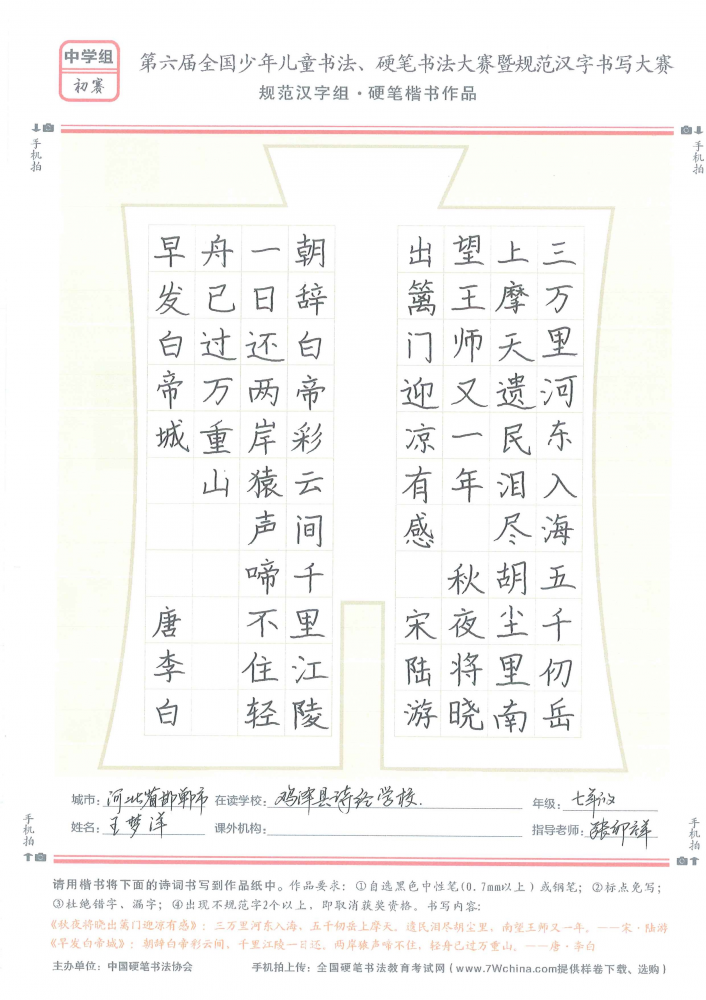 中学组
初赛
第六届全国少年儿童书法、硬笔书法大赛暨规范汉字书写大赛
规范汉字组·硬笔楷书作品
手机拍
手机拍
三万里河东入海五千仞岳
上摩天遗民泪尽胡尘里南
望王师又一年 秋夜将晓
出篱门迎凉有感 宋陆游
朝辞白帝彩云间千里江陵
一日还两岸猿声啼不住轻
舟已过万重山
早发白帝城 唐李白
城市：河北省邯郸市 在读学校：鸡泽县诗经学校. 年级：七年级
姓名：王梦洋 课外机构： 指导老师：
手机拍
手机拍
请用楷书将下面的诗词书写到作品纸中。作品要求：①自选黑色中性笔(0.7mm以上)或钢笔；②标点免写；
③杜绝错字、漏字；④出现不规范字2个以上，即取消获奖资格。书写内容：
《秋夜将晓出篱门迎凉有感》：三万里河东入海，五千仞岳上摩天。遗民泪尽胡尘里，南望王师又一年。——宋·陆游
《早发白帝城》：朝辞白帝彩云间，千里江陵一日还。两岸猿声啼不住，轻舟已过万重山。——唐·李白
主办单位：中国硬笔书法协会 手机拍上传：全国硬笔书法教育考试网（www.7Wchina.com提供样卷下载、选购）